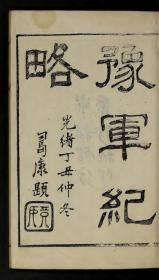 豫軍紀
略
光緒丁丑仲冬
康題